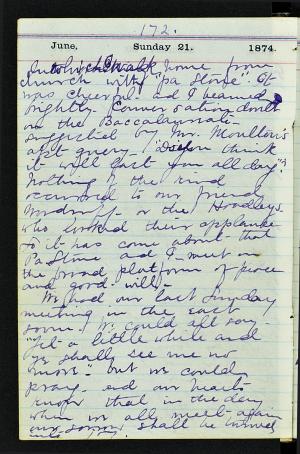 172.
June, Sunday 21. 1874.
walk home from
church with "Pa Stone". It
was cheerful and I beamed
brightly. Conversation dwelt
on the Baccalaureate
suggested by Mr. Moulton's
apt query "Do you think
it will last you all day"?
Nothing of the kind
occurred to our friend
or the Hoadleys
who looked their applause
So it has come about that
Pa Stone and I meet on
the broad platform of peace
and good will.
We had our last Sunday
meeting in the east
room. We could all say
"Yet a little while and
ye shall see me no
more" but we could
pray, and our hearts
that in the day
when we all meet again
our sorrow shall be turned
into joy.